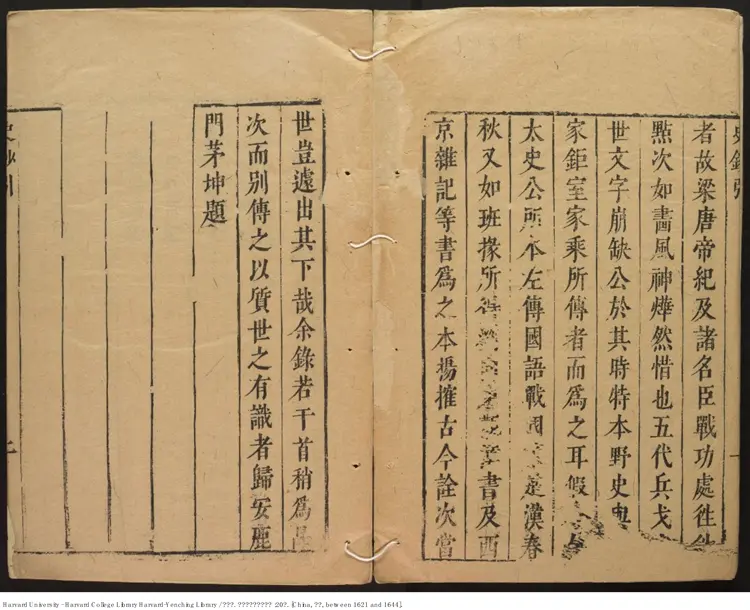 者故梁唐帝紀及諸名臣戰功處徃
㸃次如畵風神燁然惜也五代兵戈
世文字崩缺公於其時特本野史與
家鉅室家乘所傳者而爲之耳假
太史公所本左傳國語戰國楚漢春
秋又如班掾所得書及西
京雜記等書爲之本揚搉古今詮次當
世豈遽出其下哉余錄若干首稍爲
次而别傳之以質世之有識者歸安鹿
門茅坤題
Harvard University - Harvard College Library Harvard-Yenching Library / ???. ????????? 20?. [China, ??, between 1621 and 1644].